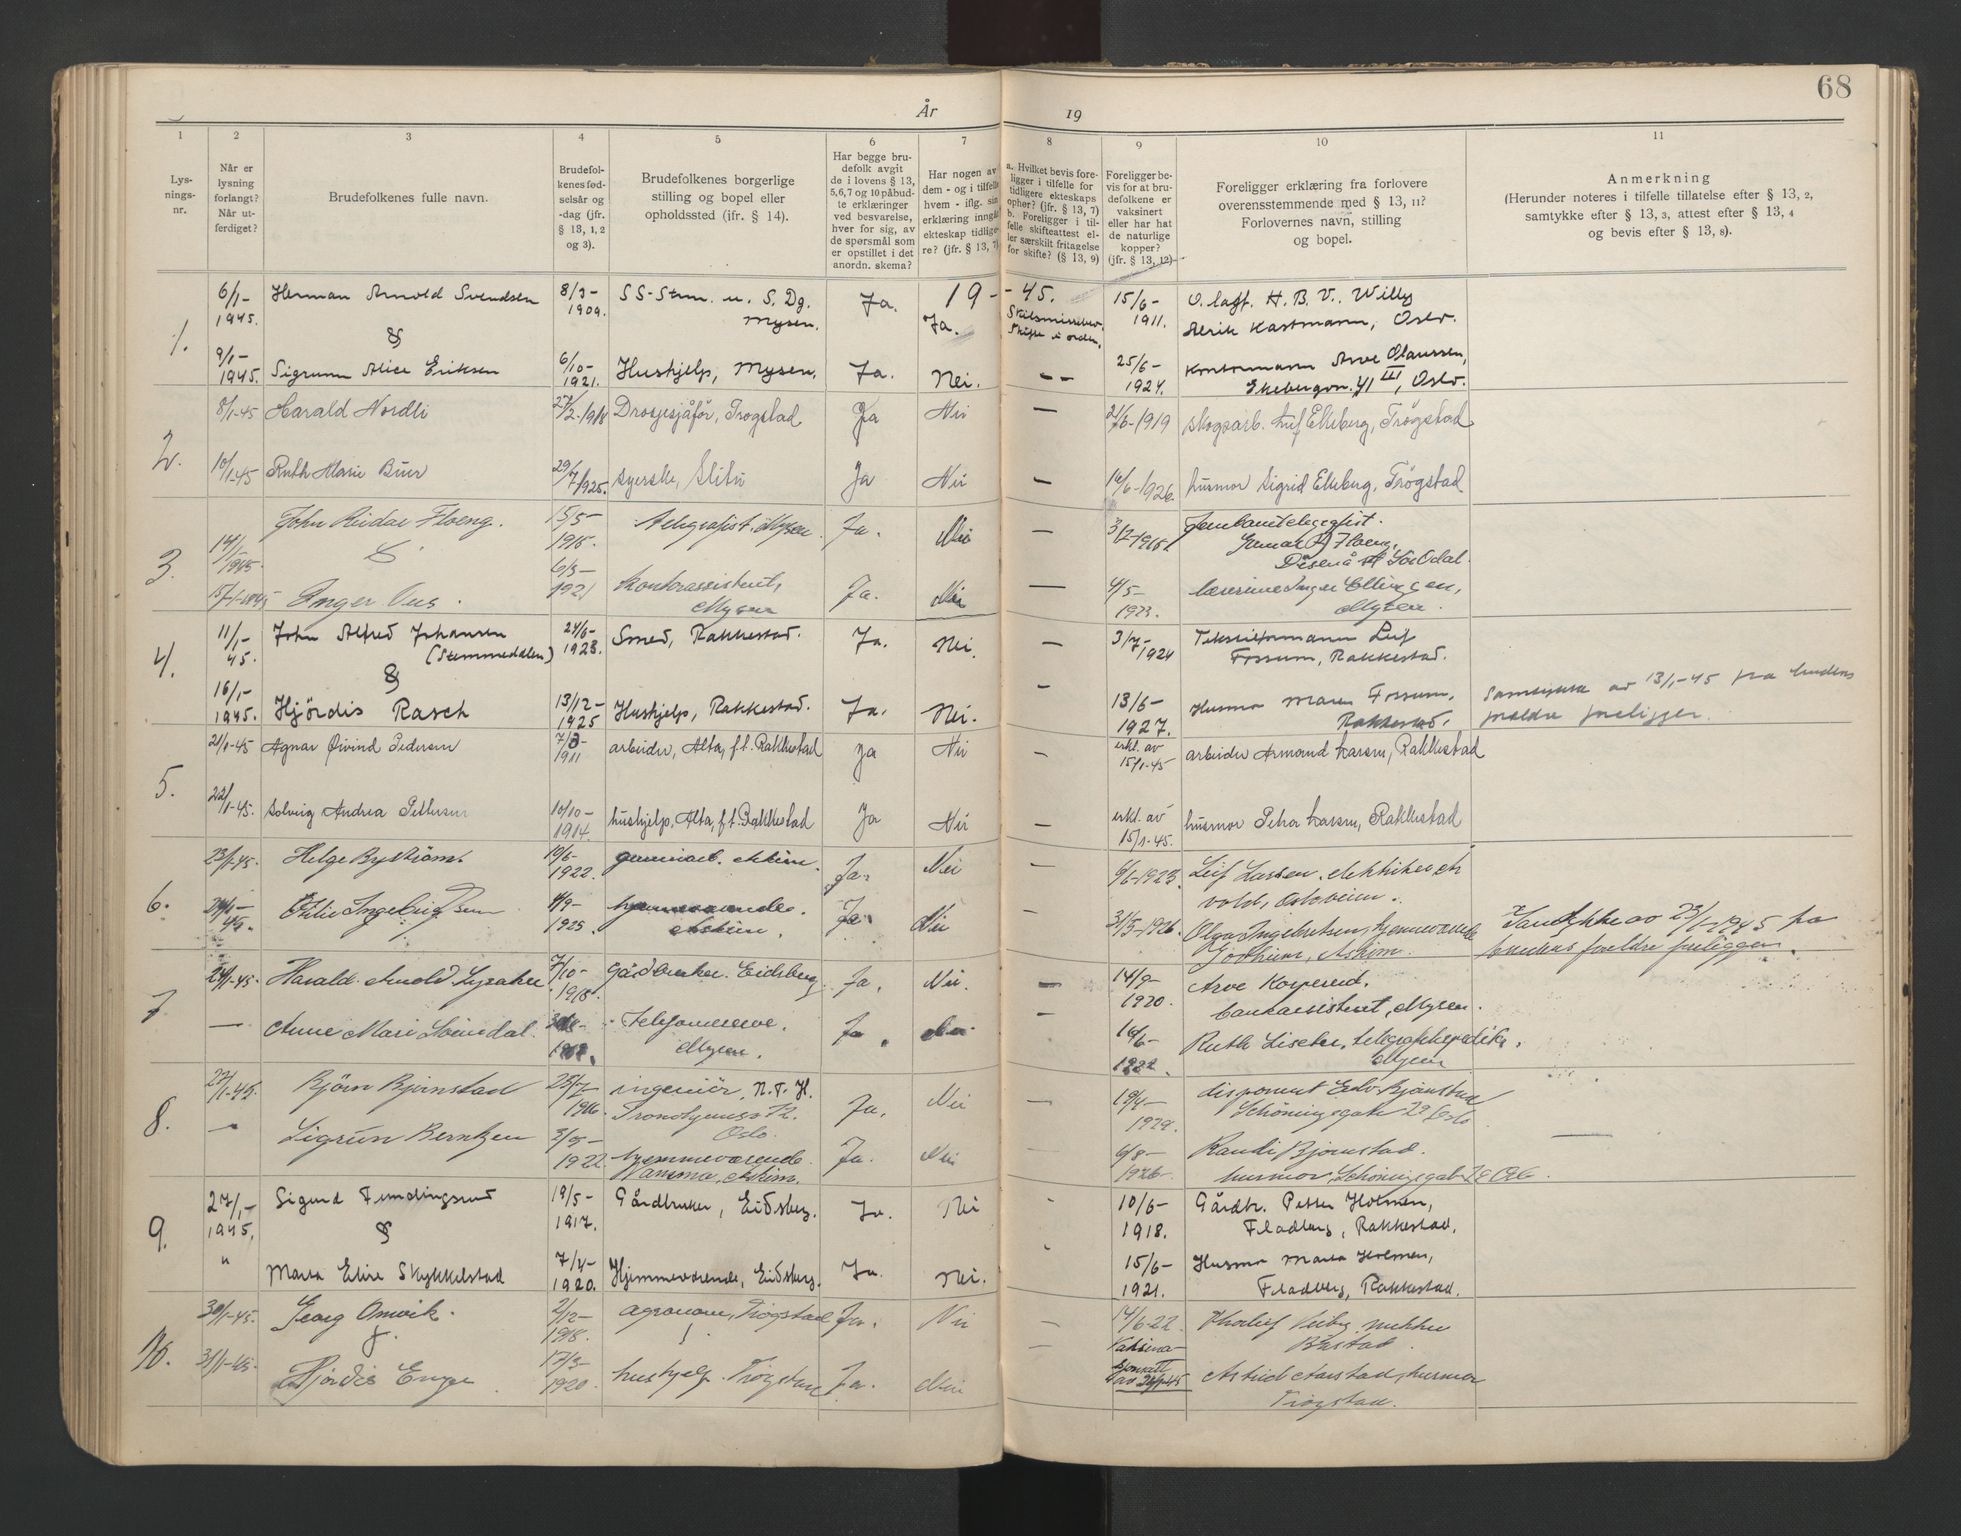 68
År 19
1 2 3 4 5 6 7 8 9 10 11
Lys-
nings-
nr.
Når er
lysning
forlangt?
Når ut-
ferdiget?
Brudefolkenes fulle navn.
Brudefol-
kenes fød-
selsår og
-dag (jfr.
§ 13, 1, 2
og 3).
Brudefolkenes borgerlige
stilling og bopel eller
opholdssted (ifr. § 14).
Har begge bru-
defolk avgit
de i lovens § 13,
5,6,7 og 10 påbud-
te erklæringer
ved besvarelse,
hver for sig, av
de spørsmål som
er opstillet i det
anordn. skema?
Har nogen av
dem - og i tilfelle
hvem - iflg. sin
erklæring inngått
ekteskap tidlige-
re? (jfr. § 13, 7)
a. Hvilket bevis fore-
ligger i tilfelle for
tidligere ekteskaps
ophør? (jfr. § 13, 7)
b. Foreligger i til-
felle skifteattest el-
ler særskilt fritagelse
for skifte? (§ 13, 9)
Foreligger be-
vis for at bru-
defolkene er
vaksinert
eller har hat
de naturlige
kopper?
(jfr. § 13, 12)
Foreligger erklæring fra forlovere
overensstemmende med § 13, 11?
Forlovernes navn, stilling
og bopel.
Anmerkning
(Herunder noteres i tilfelle tillatelse efter § 13, 2,
samtykke efter § 13, 3, attest efter § 13, 4
og bevis efter § 13, 8).
19 - - 45.
1. 6/1- 1945. Herman Arnold Svendsen 8/3- 1909. SS-Strm. u. S. Dg. Mysen. Ja. Ja. Skilsmissebev. Skifte i orden. 15/6- 1911. O. lagf. H. B. V. Willy
Alrik Kastmann, Oslo.
&
9/1- 1945. Sigrunn Alice Eriksen 6/10- 1921. Hushjelp, Mysen. Ja. Nei. -- 25/6- 1924. Kontormann Arve Olaussen,
Ekebergvn. 41 III, Oslo.
2. 8/1-45 Harald Nordli 27/2-1918 Drosjesjåfør, Trøgstad Ja Nei — 21/6-1919 skogsarb. Leif Elleberg, Trøgstad
10/1-45 Ruth Marie Buer 29/7 1925. syerske, Slitu Ja Nei — 16/6-1926. husmor Sigrid Elleberg, Trøgstad
3. 14/1 1945 John Reidar Floeng. 15/5- 1915. telegrafist, Mysen. Ja. Nei — 3/12-1915. Jernbanetelegrafist.
Gunnar Floeng,
Disenå st Sør Odal.
&
15/1-1945 Inger Aas. 6/3- 1921 kontorassistent, Mysen Ja. Nei — 4/5- 1923. lærerinne Inger Ellingsen,
Mysen.
4. 11/1- 45. John Alfred Johansen
(Stemmedalen) 24/6- 1923. Smed, Rakkestad. Ja. Nei. — 3/7- 1924 Tekstilformann Leif
Fossum, Rakkestad.
&
16/1- 1945. Hjördis Rasch 13/12- 1925 Hushjelp, Rakkestad. Ja. Nei. - 13/6- 1927. Husmor Maren Fossum,
Rakkestad. Samtykke av 13/1-45 fra brudens
foreldre foreligger.
5. 21/1-45 Agnar Øivind Pedersen 7/3- 1911 arbeider, Alta, f.t. Rakkestad ja Nei — erkl. av 15/1-45 arbeider Armand Larsen, Rakkestad
22/1-45. Solveig Andrea Pettersen 10/10- 1914. hushjelp, Alta, f.t. Rakkestad Ja Nei — erkl. av 15/1-45. husmor Petra Larsen, Rakkestad
6. 23/1-45. Helge Byström. 19/6- 1922. gummiarb. Askim. Ja. Nei — 6/6-1923. Leif Larsen, elektriker
vold, Osloveien.
24/1- 45. 4/9- 1925. hjemmeværende. Askim. Ja. Nei — 31/5-1926. Olga Ingebretsen, hjemmeværende
Askim. Samtykke av 23/1-1945 fra
brudens foreldre foreligger.
7. 24/1-45. Harald Arnold Lysaker 7/10- 1915. Gårdbruker. Eidsberg. Ja. Nei. — 14/9- 1920. Arve Korperud,
bankassistent, Mysen.
— Anne Mari Svendal. Mysen. Ja. Nei - 16/6- 1922. Ruth Liseter,
Mysen
8. 27/1-45 Björn Bjørnstad 25/7- 1916. ingeniör, N.T.H.
Trondhjemsv. 72.
Oslo. Ja. Nei — 19/4- 1929. disponent Edv. Bjørnstad
Schöningsgate 29 Oslo
" Sigrun Berntzen 3/9- 1922. hjemmeværende.
Vamma, Askim. Ja. Nei — 6/8- 1926. Randi Bjørnstad.
husmor, Schöningsgate 29 Oslo.
9. 27/1- 1945. Sigurd Fundingsrud 19/5- 1917. Gårdbruker, Eidsberg. Ja. Nei - 10/6- 1918. Gårdbr. Petter Holmen,
Fladberg, Rakkestad.
&
" Marta Elise Skykkelstad 7/4- 1920. Hjemmeværende, Eidsberg. Ja. Nei. - 15/6- 1921. Husmor Marta Holmen,
Fladberg, Rakkestad.
10. 30/1-45. Georg Omvik. 2/12- 1918. agronom, Trøgstad Ja. Nei — 14/6-22.
Båstad.
31/1-45. Hjördis Enger 17/3- 1920. hushjelp. Trøgstad Ja. Nei — Vaksina- 45 Astrid Aarstad, husmor
Trøgstad.